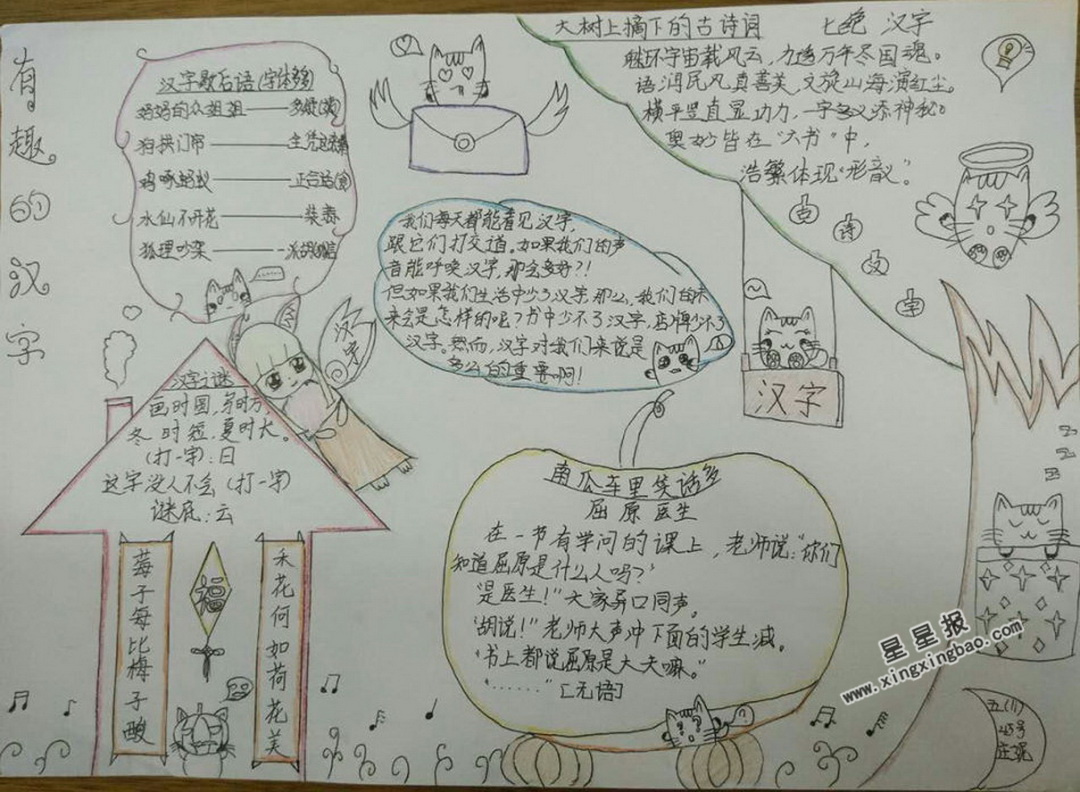 有趣的汉字
汉字歇后语(字体多多)
妈妈的众姐姐——多姨(疑)
狗拱门帘——全凭
鸡啄蚂蚁——正合适(食)
水仙不开花——装蒜
狐狸吵架——
大树上摘下的古诗词
七绝 汉字
宇宙载风云,力透万年冬国魂。
语润民凡真善美,文旅山海演红尘。
横平竖直显功力,一字多义添神秘。
奥妙皆在"六书"中,
浩繁体现"形音义"。
古诗文字
我们每天都能看见汉字,
跟它们打交道。如果我们的声
音能呼唤汉字,那会多好?!
但如果我们生活中少了汉字,那么,我们的未
来会是怎样的呢?书中少不了汉字,店牌少不了
汉字。然而,汉字对我们来说是
多么的重要啊!
汉字
汉字
汉字之谜
画时圆,写时方,
冬时短,夏时长。
(打一字):日
这字没人不会(打一字)
谜底:云
莓子每比梅子酸
福
禾花何如荷花美
南瓜车里笑话多
屈原医生
在一节有学问的课上,老师说:"你们
知道屈原是什么人吗?"
"是医生!"大家异口同声。
"胡说!"老师大声冲下面的学生减。
"书上都说屈原是大夫嘛。"
"……"[无语]
星星报
www.xingxingbao.com